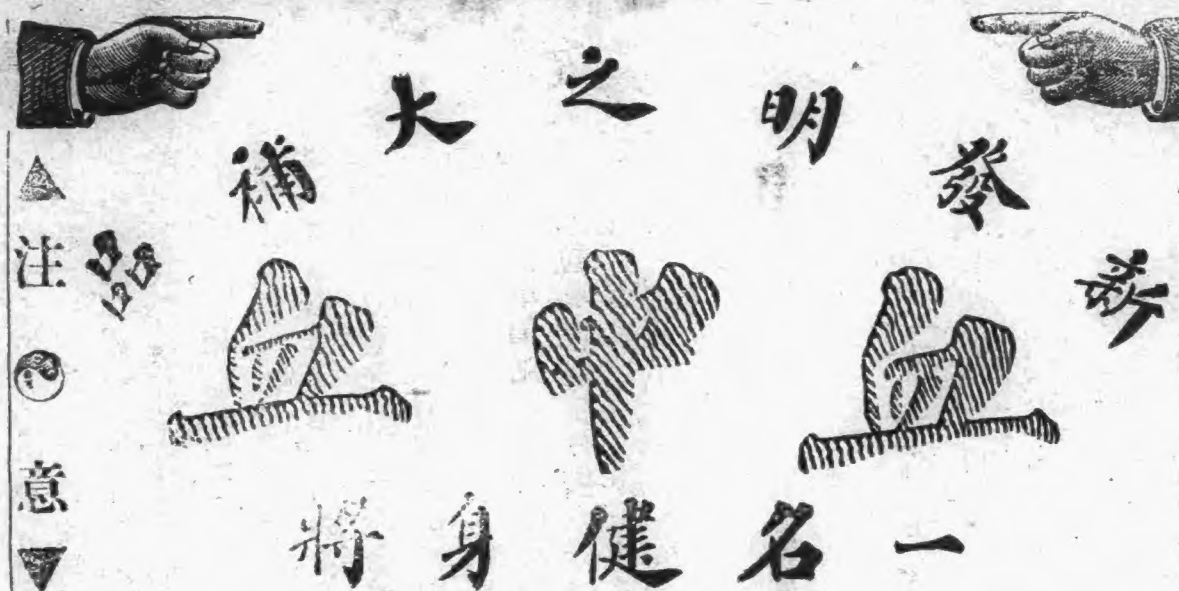 新發明之大補品
血中血
一名健身將
注意